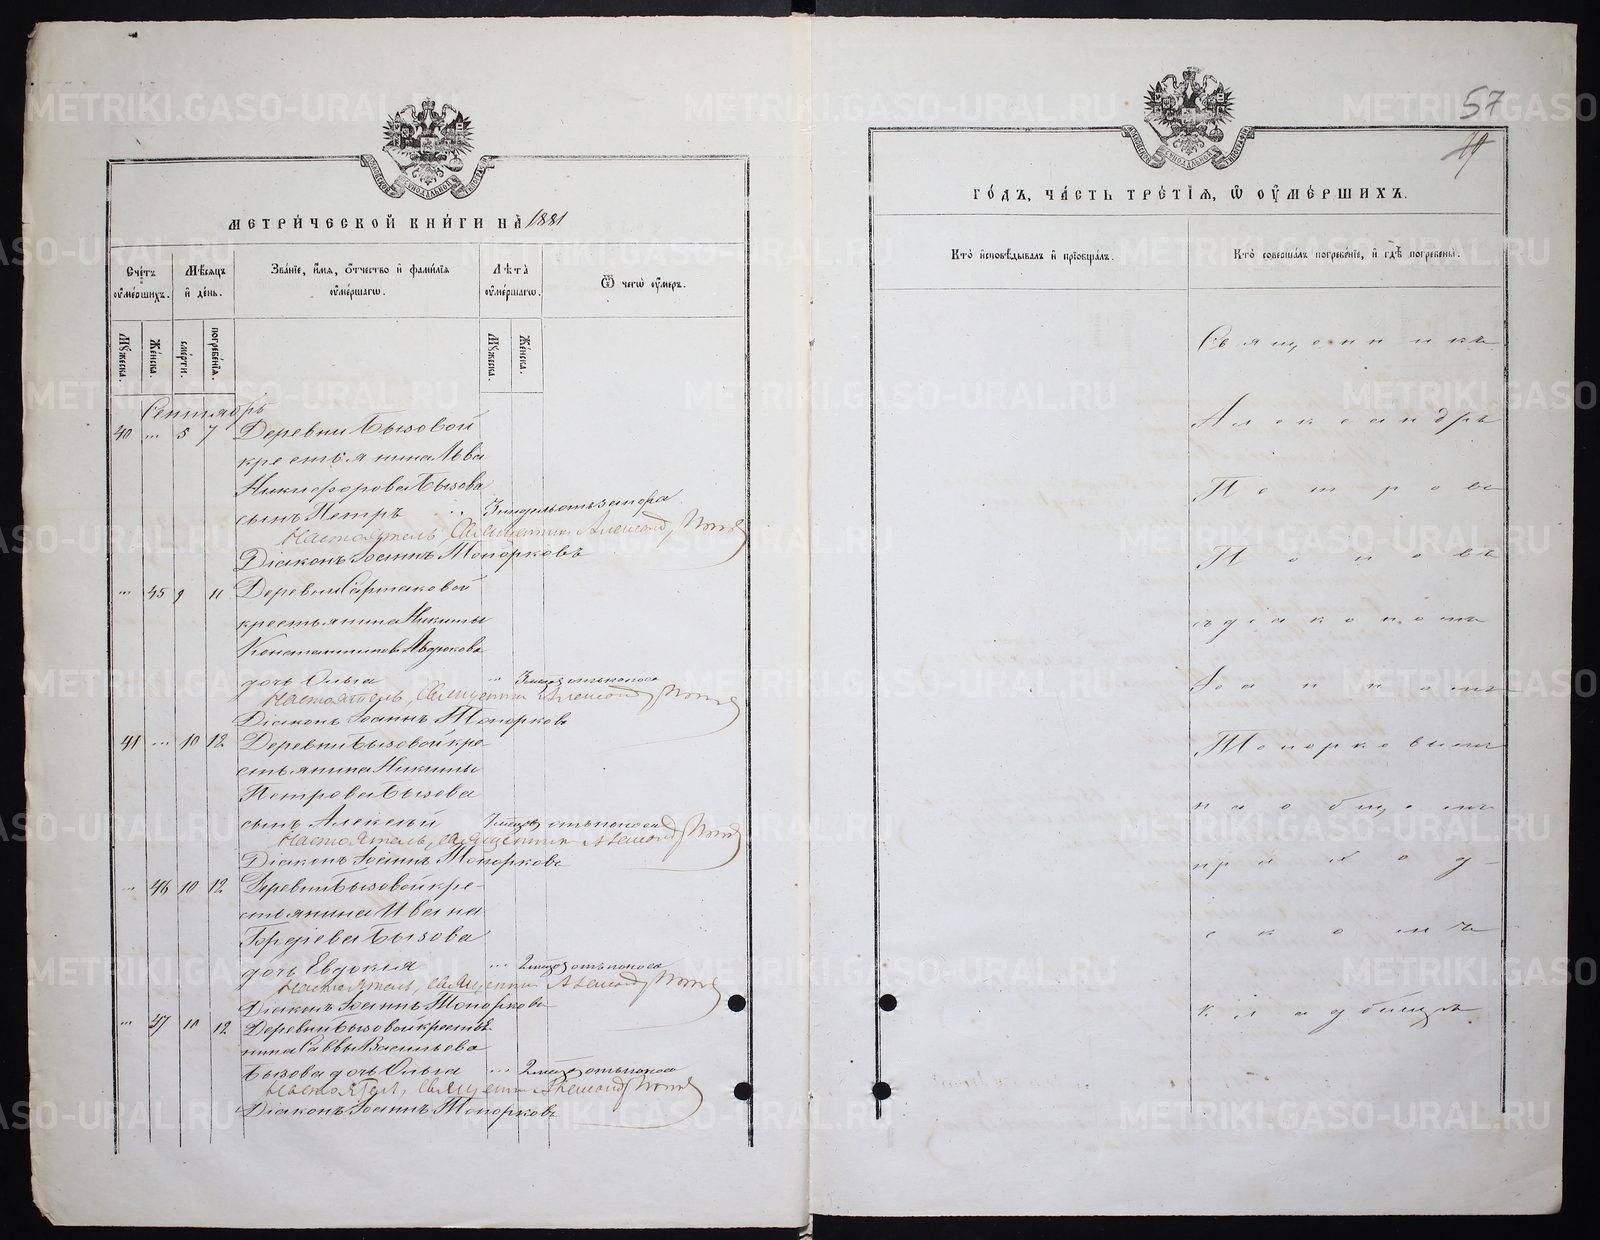 МЕТРИ́ЧЕСКОЙ КНИ́ГИ НА̀ 1881
Сче́тъ ᲂу҆ме́ршихъ.
Мѣ́сяцъ и҆ де́нь.
Зва́нїе, и҆́мѧ, ѻ҆́тчество и҆ фами́лїѧ ᲂу҆ме́ршагѡ.
Лѣ́та ᲂу҆ме́ршагѡ.
Ѿ чегѡ̀ ᲂу҆́меръ.
Мꙋ́жеска.
Же́нска.
сме́рти.
погребе́нїѧ.
Мꙋ́жеска.
Же́нска.
Сентябрь
40 ... 5 7 Деревни Бызовой
крестьянина Льва
Никифорова Бызова
сынъ Петръ 3 недель отъ запора
Настоятель, Священник Александр Попов
Діаконъ Іоаннъ Топорковъ
... 45 9 11 Деревни Сартаковой
крестьянина Никиты
Константинова Авдюкова
дочь Ольга ... отъ поноса
Настоятель, Священник Александр Попов
Діаконъ Іоаннъ Топорковъ
41 ... 10 12 Деревни Бызовой кре-
стьянина Никиты
Петрова Бызова
сынъ Алексѣй отъ поноса
Настоятель, Священник Александр Попов
Діаконъ Іоаннъ Топорковъ
... 46 10 12 Деревни Бызовой кре-
стьянина Ивана
Бызова
дочь Евдокія ... 2 отъ поноса
Настоятель, Священник Александр Попов
Діаконъ Іоаннъ Топорковъ
... 47 10 12 Деревни Бызовой крестья
нина Саввы Васильева
Бызова дочь Ольга ... 2 отъ поноса
Настоятель, Священник Александр Попов
Діаконъ Іоаннъ Топорковъ
57
ГО́ДЪ, ЧА́СТЬ ТРЕ́ТЇѦ, Ѡ҆ ОУ҆МЕ́РШИХЪ.
Кто̀ и҆сповѣ́дывалъ и҆ прїѡбща́лъ.
Кто̀ соверша́лъ погребе́нїе, и҆ гдѣ̀ погребены̀.
Священникъ
Александръ
Петровъ
Поповъ
съ діакономъ
Іоанномъ
Топорковымъ
на общемъ
приход-
скомъ
кладбищѣ